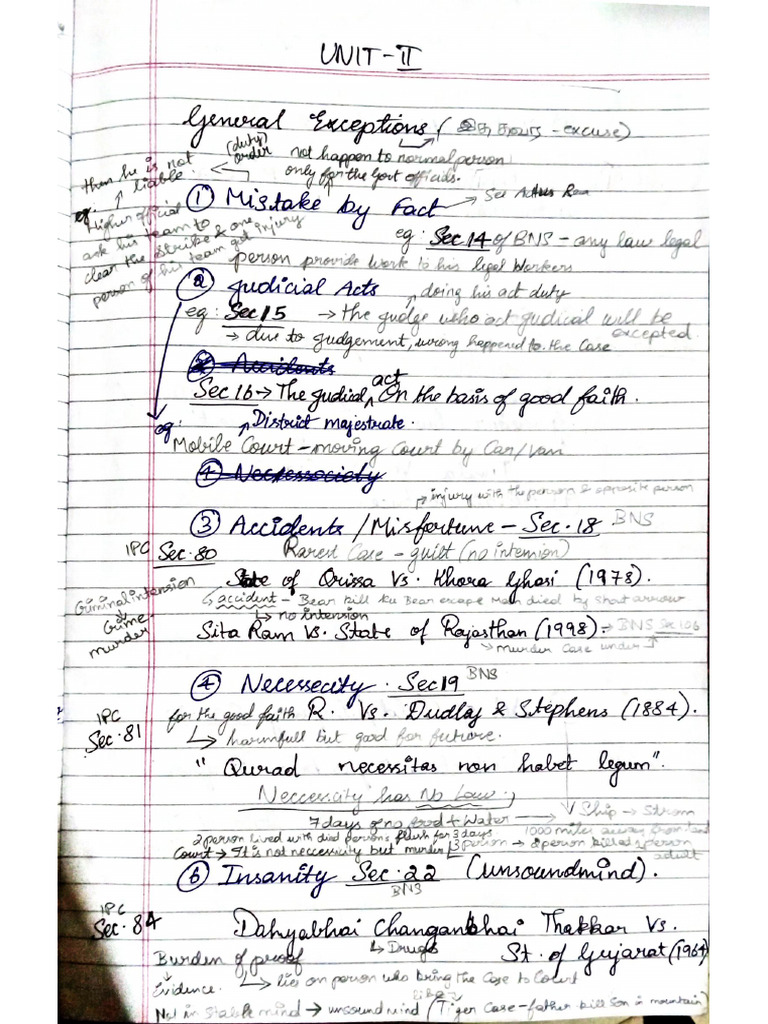 UNIT-II
General Exceptions ( - excuse)
(duty)
order
not happen to normal person
only for the Govt officials.
then he is not
liable.
① Mistake by Fact
eg:
Higher official
ask his team to
clear the strike & one
person of his team get injury
eg: Sec.14 of BNS - any law legal
person provide work to his legal workers
② Judicial Acts
doing his act duty
eg: Sec 15 → the gudge who act judical will be
excepted.
→ due to gudgement, wrong happened to the case
② Accidents
Sec 16 → The judical act On the basis of good faith.
District majestrate.
eg:
Mobile Court - moving Court by Car/van
④ Necessociety
injury with the person & opposite person
③ Accidents / Misfortune - Sec.18 BNS
IPC Sec.80 Rarest Case - guilt (no intension)
State of Orissa Vs. Khora Ghasi (1978).
Criminal intension
Crime
murder
accident - Bear kill Bear escape Man died by arrow
no intension
Sita Ram Vs. State of Rajasthan (1998). → BNS Sec 106
→ murder Case under
④ Necessecity. Sec 19 BNS
IPC
Sec.81
for the good faith R. Vs. Dudlay & Stephens (1884).
harmfull but good for future.
"Qurad necessitas non habet legum".
Neccessity has No Law.
7 days of no food + water → Ship → Strom
2 person lived with died persons flush for 3 days
1000 miles away from land
Court → It is not neccessity but murder
3 person → person killed person
adult
⑥ Insanity Sec.22 (unsoundmind).
BNS
IPC
Sec.84
Dahyabhai Changanbhai Thakkar Vs.
Drugs
St. of Gujarat (1964)
Burden of proof
Evidence.
lies on person who bring the Case to Court
Not in Stable mind → unsound mind (Tiger Case - father kill Son in mountain)